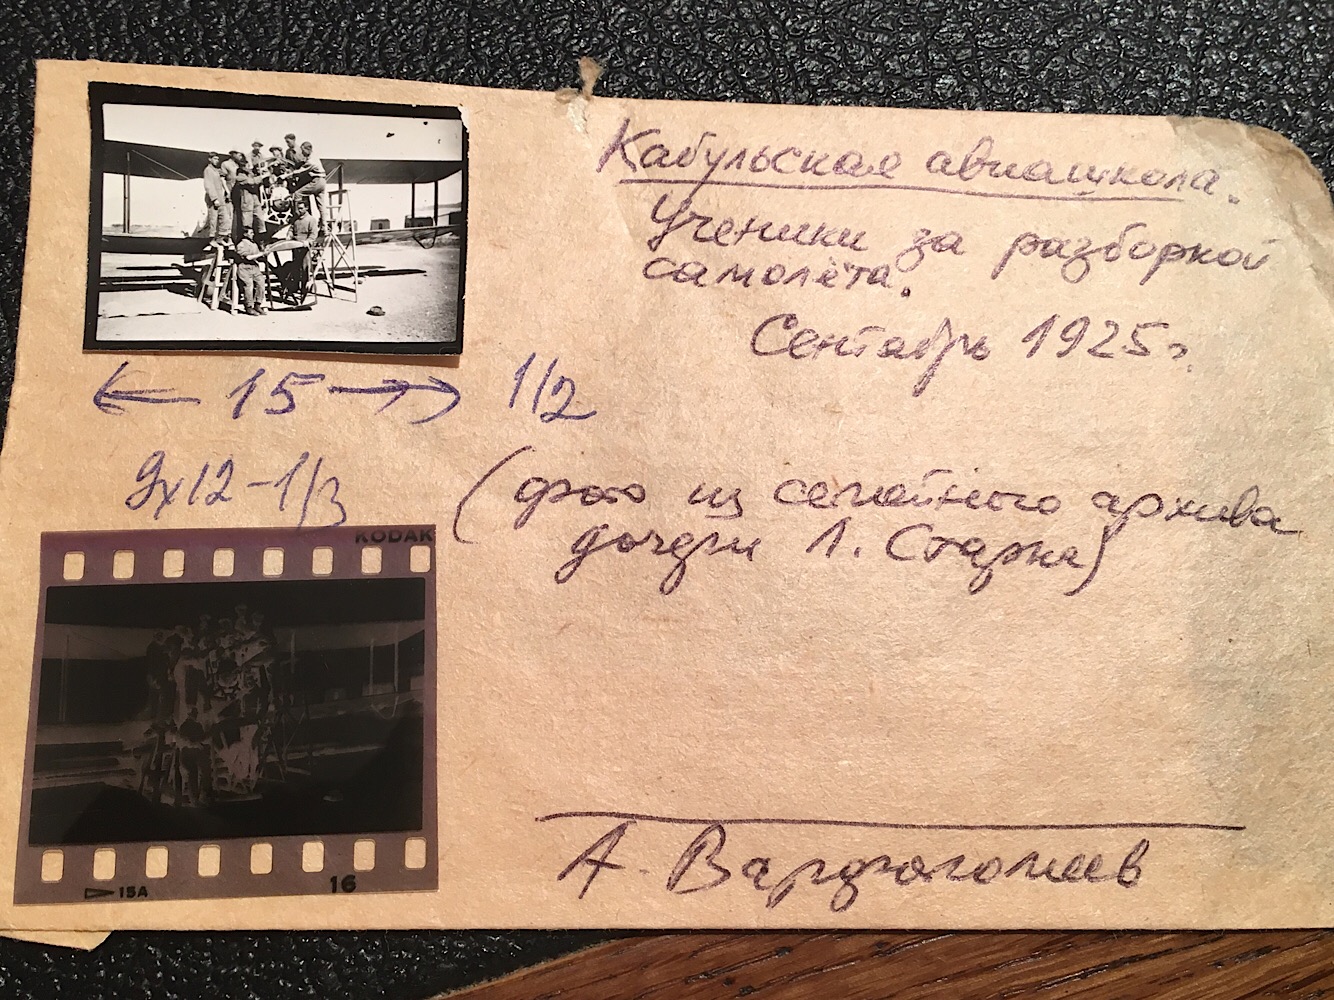 Кабульская авиашкола.
Ученики за разборкой
самолёта.
Сентябрь 1925г.
← 15 → 1/2
9х12 – 1/3
(фото из семейного архива
дочери Л. Старка)
KODAK
15A
16
А. Варфоломеев